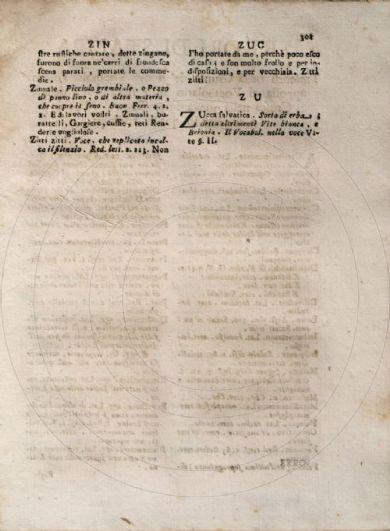 ZIN
stre rustiche cantare, dette zingane,
furono di fuora ne'carri di frondesca
scena parati, portate le comme-
die.
Zinnale. Picciolo grembiale. o Pezzo
di panno lino. o di altra materia,
che cuopre il seno. Buon Fier. 4. 2.
2. E di lavori vostri. Zinnali, bu-
rattelli, Gorgiere, cuffie, reti Rea-
derle vogliolose.
Zitti zitti. Voce, che replicata incul-
ca il silenzio. Red. lett. 2. 213. Non
ZUC
301
l'ho portate da me, perchè poco esco
di casa e son molto frollo e per in-
disposizioni, e per vecchiaia. Zitti
zitti.
Z U
Zucca salvatica. Sorta di erba
detta altrimenti Vite bianca, e
Brionia. Il Vocabol. nella voce Vi-
te §. II.